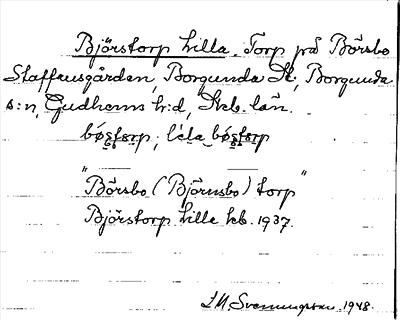 Björstorp Lilla. Torp på Börsbo
Staffansgården, Borgunda St., Borgunda
s:n, Gudhems h:d, Skb. län.
bøstɷrp; lɩ́la bøstɷrp
"Börsbo (Björnsbo) torp"
Björstorp Lille kb. 1937.
Svenungsson. 1948.